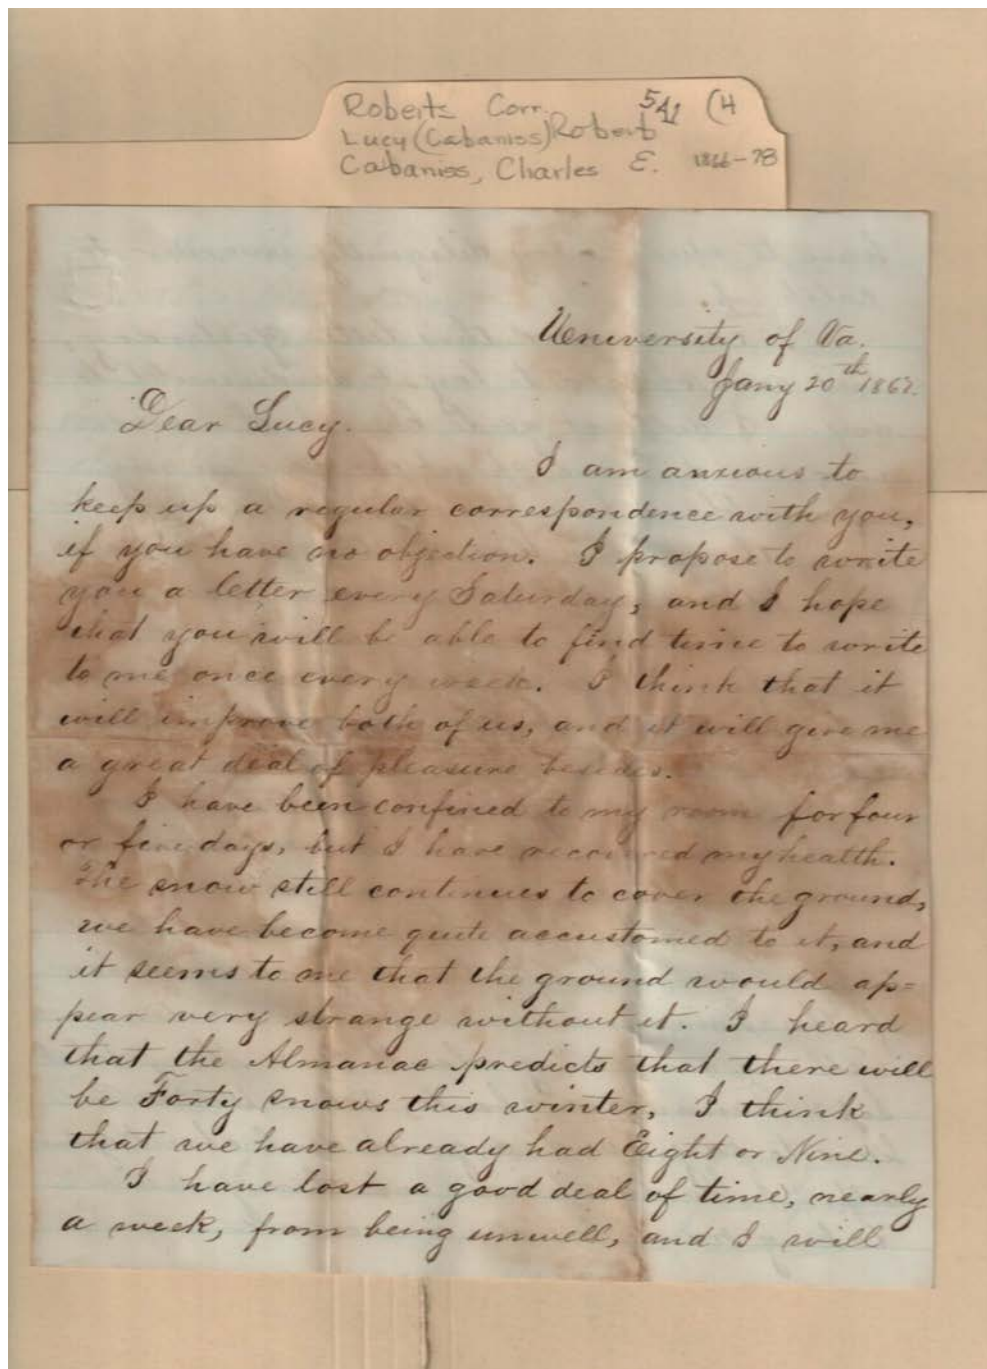 Roberts Corr. 541 (4
Lucy (Cabaniss) Roberts
Cabaniss, Charles E. 1866-78
University of Va.
Jany 20th 1867.
Dear Lucy.
I am anxious to
keep up a regular correspondence with you,
if you have no objection. I propose to write
you a letter every Saturday, and I hope
that you will be able to find time to write
to me once every week. I think that it
will improve both of us, and it will give me
a great deal of pleasure besides.
I have been confined to my room for four
or five days, but I have recovered my health.
The snow still continues to cover the ground,
we have become quite accustomed to it, and
it seems to me that the ground would ap=
pear very strange without it. I heard
that the Almanac predicts that there will
be Forty snows this winter, I think
that we have already had Eight or Nine.
I have lost a good deal of time, nearly
a week, from being unwell, and I will